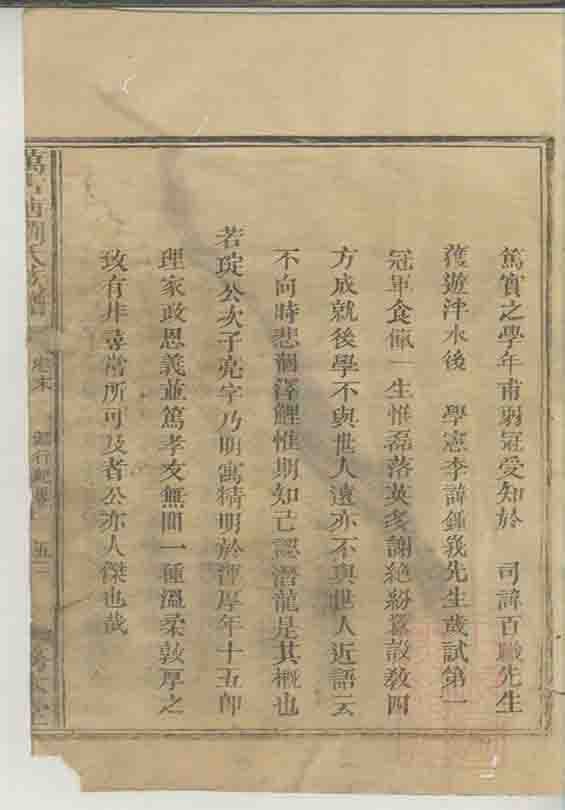 篤實之學年甫弱冠受知於　司諱百職先生
獲遊泮水後　學憲李諱鍾峩先生歲試第一
冠軍食餼一生惟磊落英多謝絕紛設敎四
方成就後學不與世人遠亦不與世人近語云
不向時悲涸澤鯉惟期知己認潛龍是其概也
若琔公次子亮字乃明寓精明於渾厚年十五卽
理家政恩義並篤孝友無間一種溫柔敦厚之
致有非尋常所可及者公亦人傑也哉
劉氏族譜
卷末
行紀畧
五三